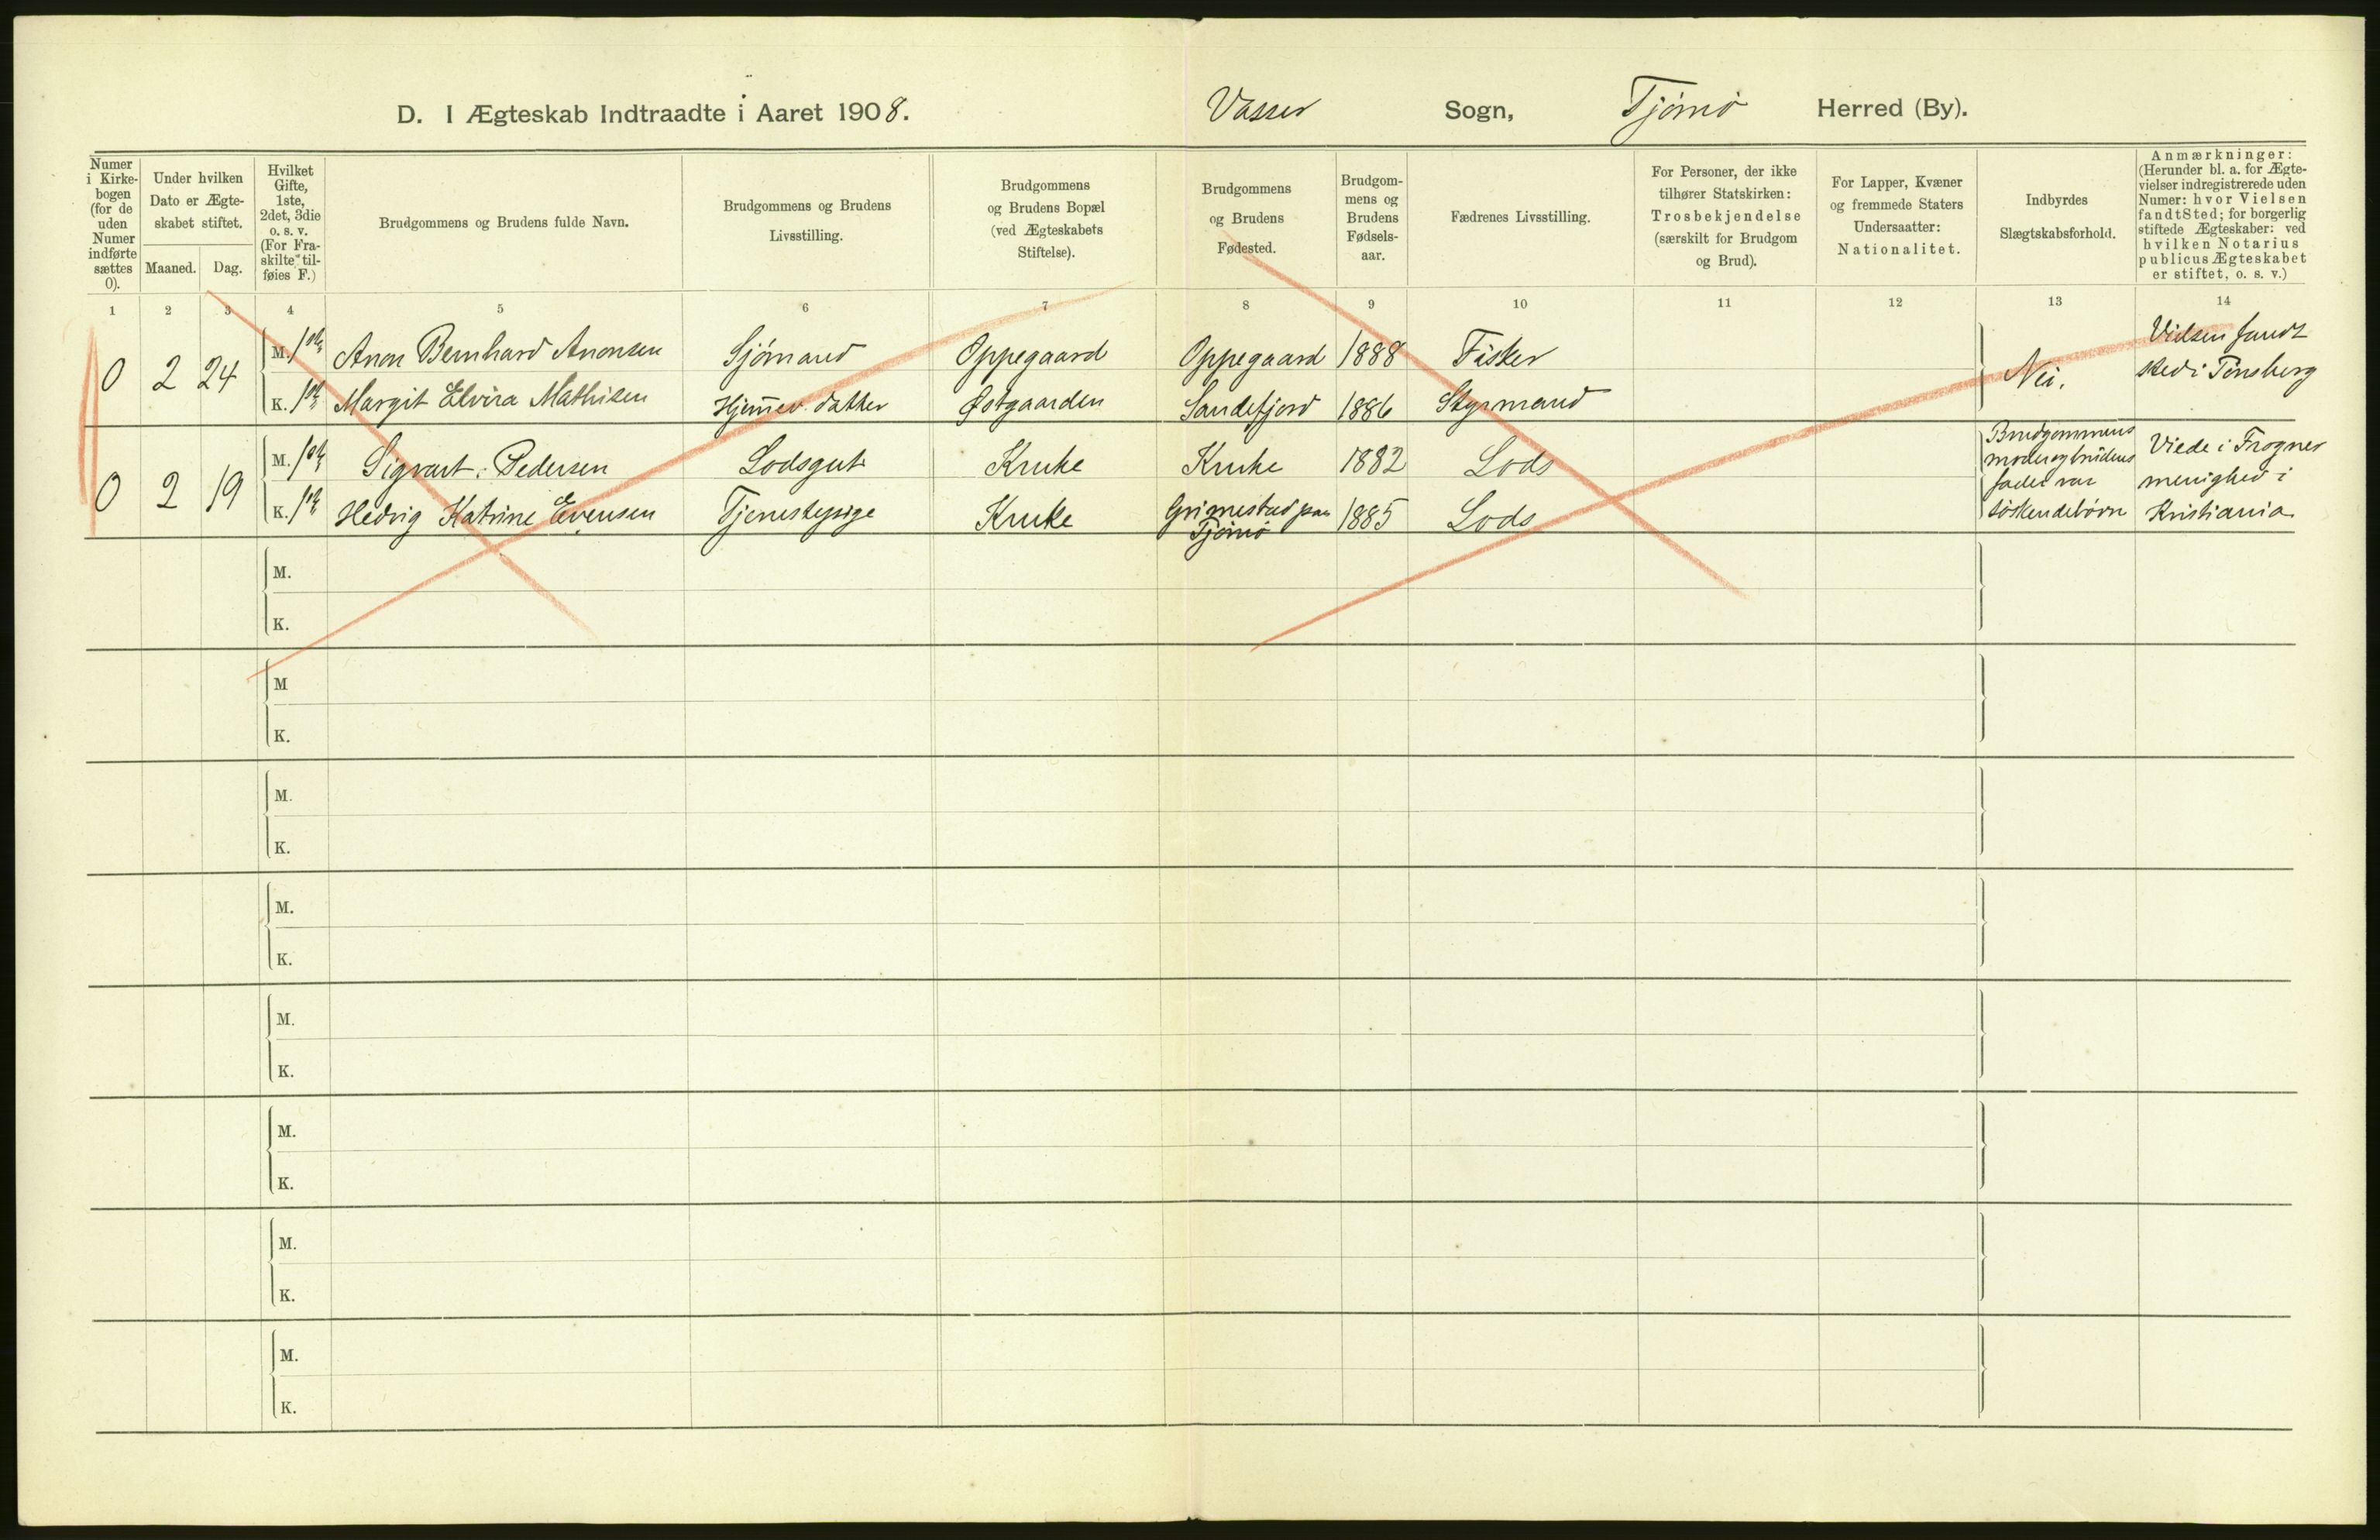 D. I Ægteskab Indtraadte i Aaret 1908. Vasser Sogn, Tjømø Herred (By).
Numer i Kirkebogen (for de uden Numer indførte sættes 0).
Under hvilken Dato er Ægteskabet stiftet.
Maaned. Dag.
Hvilket Gifte, 1ste, 2det, 3die o. s. v. (For Fraskilte tilføies F.)
Brudgommens og Brudens fulde Navn.
Brudgommens og Brudens Livsstilling.
Brudgommens og Brudens Bopæl (ved Ægteskabets Stiftelse).
Brudgommens og Brudens Fødested.
Brudgommens og Brudens Fødselsaar.
Fædrenes Livsstilling.
For Personer, der ikke tilhører Statskirken: Trosbekjendelse (særskilt for Brudgom og Brud).
For Lapper, Kvæner og fremmede Staters Undersaatter: Nationalitet.
Indbyrdes Slægtskabsforhold.
Anmærkninger: (Herunder bl. a. for Ægtevielser indregistrerede uden Numer: hvor Vielsen fandt Sted; for borgerlig stiftede Ægteskaber: ved hvilken Notarius publicus Ægteskabet er stiftet, o. s. v.)
1 2 3 4 5 6 7 8 9 10 11 12 13 14
0 2 24 M. 1ste Anon Bernhard Anonsen Sjømand Oppegaard Oppegaard 1888 Fisker Nei. Vielsen fandt
sted i Tønsberg
K. 1ste Margit Elvira Mathisen Hjemmev. datter Østgaarden Sandefjord 1886 Styrmand
0 2 19 M. 1ste Sigvart Pedersen Lodsgut Kruke Kruke 1882 Lods
K. 1ste Hedvig Katrine Evensen Tjenestepige Kruke Grimestad paa Tjømø 1885 Lods
Brudgommens
moder og brudens
fader var
søskendebørn
Viede i Frogner
menighed i
Kristiania
M.
K.
M
K.
M.
K.
M.
K.
M.
K.
M.
K.
M.
K.
M.
K.